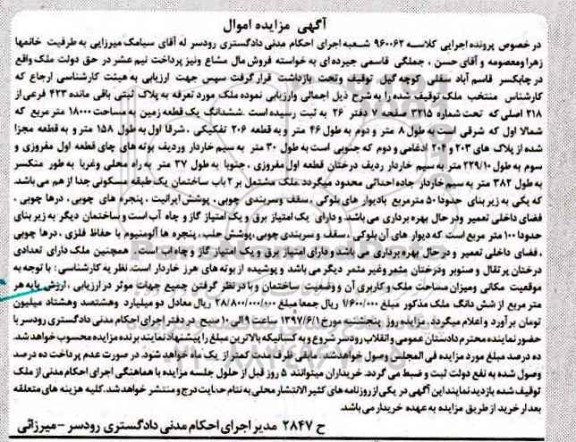 آگهی مزایده اموال
در خصوص پرونده اجرایی کلاسه ۹۶۰۰۶۲ شعبه اجرای احکام مدنی دادگستری رودسر له آقای سیامک میرزایی به طرفیت خانمها
زهرا ومعصومه و آقای حسن ، جملگی قاسمی جیرده ای به خواسته فروش مال مشاع ونیز پرداخت نیم عشر در حق دولت ملک واقع
در چابکسر قاسم آباد سفلی کوچه گیل توقیف وتحت بازداشت قرار گرفت سپس جهت ارزیابی به هیئت کارشناسی ارجاع که
کارشناس منتخب ملک توقیف شده را به شرح ذیل اجمالی وارزیابی نموده ملک مورد تعرفه به پلاک ثبتی باقی مانده ۴۲۳ فرعی از
۲۱۸ اصلی که تحت شماره ۳۲۱۵ صفحه ۷ دفتر ۲۶ به ثبت رسیده است. ششدانگ یک قطعه زمین به مساحت ۱۸۰۰۰ متر مربع که
شمالا اول که شرقی است به طول ۸ متر و دوم به طول ۴۶ متر و به قطعه ۲۰۶ تفکیکی ، شرقا اول به طول ۱۵۸ متر و به قطعه مجزا
شده از پلاک های ۲۰۳ و ۲۰۴ ادغامی و دوم که جنوبی است به طول ۳۰ متر به سیم خاردار وردیف بوته های چای قطعه اول مفروزی و
سوم به طول ۲۲۹/۱۰ متر به سیم خاردار ردیف درختان قطعه اول مفروزی ، جنوبا به طول ۳۷ متر به راه محلی وغربا به طور منکسر
به طول ۳۸۳ متر به سیم خاردار جاده احداثی محدود میگردد ملک مشتمل بر ۲ باب ساختمان یک طبقه مسکونی جدا از هم می باشد.
که یکی به زیر بنای حدودا ۵۰ مترمربع بادیوار های بلوکی ، سقف وسربندی چوبی ، پوشش ایرانیت ، پنجره های چوبی ، درها چوبی ،
فضای داخلی تعمیر ودر حال بهره برداری می باشد و دارای یک امتیاز برق و یک امتیاز گاز و چاه آب است و ساختمان دیگر به زیر بنای
حدودا ۱۰۰ متر مربع است که دیوار های آن بلوکی ، سقف و سربندی چوبی ، پوشش حلب ، پنجره ها آلومنیوم با حفاظ فلزی ، درها چوبی
، فضای داخلی تعمیر و در حال بهره برداری می باشد و دارای امتیاز برق و یک امتیاز گاز و چاه آب است . همچنین ملک دارای تعدادی
درختان پرتقال و صنوبر ودرختان مثمر وغیر مثمر دیگر می باشد و پوشیده از بوته های هرز خاردار است. نظر یه کارشناسی : با توجه به
موقعیت مکانی ومیزان مساحت ملک و کاربری آن و وضعیت ساختمان و با در نظر گرفتن جمیع جهات موثر در ارزیابی ، ارزش پایه هر
متر مربع از شش دانگ ملک مذکور مبلغ ۱/۶۰۰/۰۰۰ ریال جمعا مبلغ ۲۸/۸۰۰/۰۰۰/۰۰۰ ریال معادل دو میلیارد وهشتصد وهشتاد میلیون
تومان بر آورد و اعلام میگردد. مزایده روز پنجشنبه مورخ ۱۳۹۷/۶/۱ ساعت ۹ الی ۱۰ صبح در دفتر اجرای احکام مدنی دادگستری رودسر با
حضور نماینده محترم دادستان عمومی و انقلاب رودسر شروع و به کسانیکه بالاترین مبلغ را پیشنهاد نمایند برنده مزایده محسوب خواهد شد.
ده درصد مبلغ مورد مزایده فی المجلس وصول خواهد شد. باقی ظرف مدت کمتر از یک ماه خواهد شود. در صورت عدم پرداخت ده درصد
وصول شده به نفع دولت ثبت و ضبط می گردد. خریداران میتوانند ۵ روز قبل از حلول جلسه مزایده با هماهنگی اجرای احکام مدنی از ملک
توقیف شده بازدید نمایند این آگهی در یکی از روزنامه های کثیر الانتشار محلی به نام حدایت درج و منتشر خواهد شد. کلیه هزینه های متعلقه
بعد از خرید از طریق مزایده به عهده خریدار می باشد.
ح ۲۸۴۷ مدیر اجرای احکام مدنی دادگستری رودسر -میرزائی